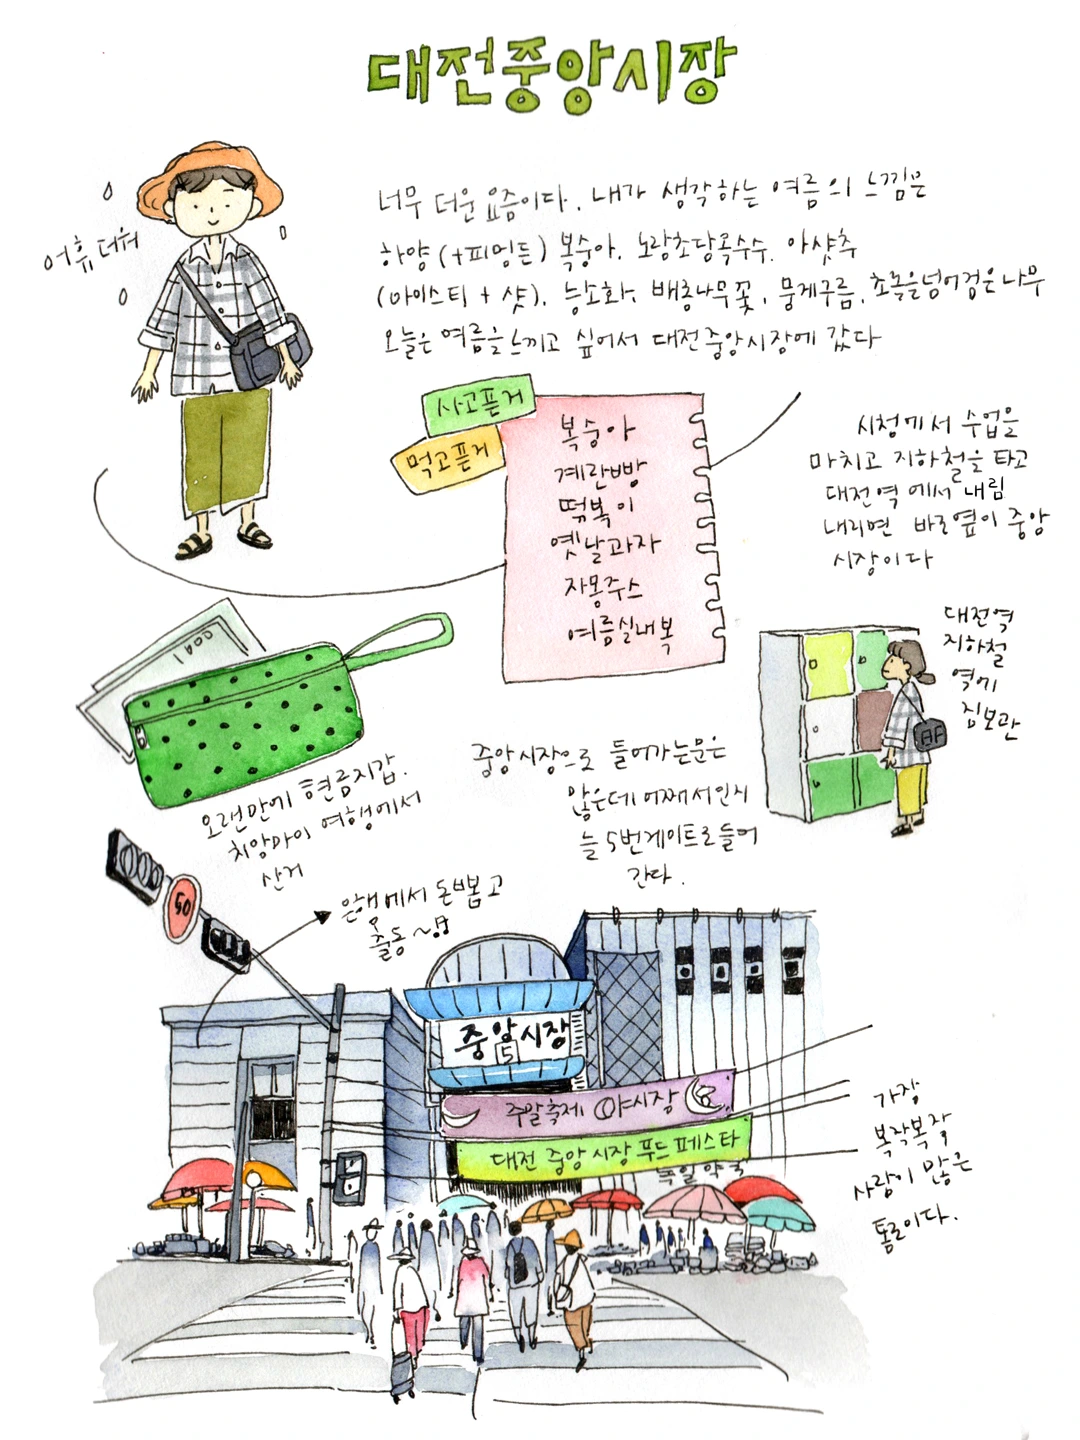 대전중앙시장
어휴 더워
너무 더운 요즘이다. 내가 생각하는 여름의 느낌은
하양(+피멍든) 복숭아. 노랑초당옥수수. 아샷추
(아이스티 + 샷). 능소화. 배롱나무꽃. 뭉게구름. 초록을넘어검은나무
오늘은 여름을 느끼고 싶어서 대전중앙시장에 갔다
사고픈거
먹고픈거
복숭아
계란빵
떡볶이
옛날과자
자몽주스
여름실내복
시청에서 수업을
마치고 지하철을 타고
대전역에서 내림
내리면 바로옆이 중앙
시장이다
대전역
지하철
역에
짐보관
1000
오랜만에 현금지갑.
치앙마이 여행에서
산거
중앙시장으로 들어가는문은
많은데 어째서인지
늘 5번게이트로들어
간다.
은행에서 돈뽑고
출동~
50
중앙시장
5
주말축제 야시장
대전 중앙시장 푸드 페스타
독일약국
가장
복작복작
사람이 많은
통로이다.